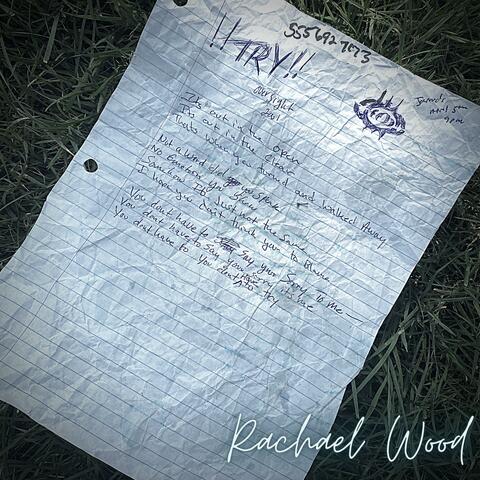 5556927073
!!TRY!!
Oversight
2001
Jared's
4pm
It's out in the open
It's out in the clear
That's when you turned and walked Away
Not a word did you speak
No Emotion you gave
Somehow It's just not the same
I hope you don't think you're to blame
You don't have to say your Sorry To Me
You don't have to say your sorry, it's me
You don't have to You don't have to try
Rachael Wood